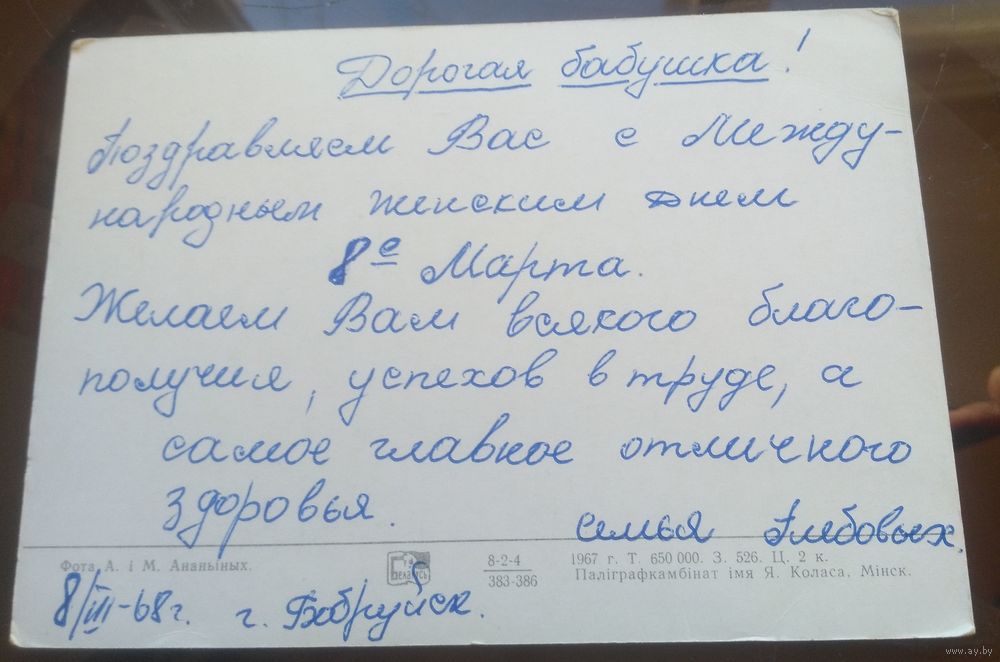 Дорогая бабушка!
Поздравляем Вас с Между-
народным женским днем
8е Марта.
Желаем Вам всякого благо-
получия, успехов в труде, а
самое главное отличного
здоровья.
семья Глебовых.
Фота А. і М. Ананьіных.
Беларусь
8-2-4
383-386
1967 г. Т. 650 000. З. 526. Ц. 2 к.
Паліграфкамбінат імя Я. Коласа. Мінск.
8/III-68г. г. Бобруйск.
www.ay.by